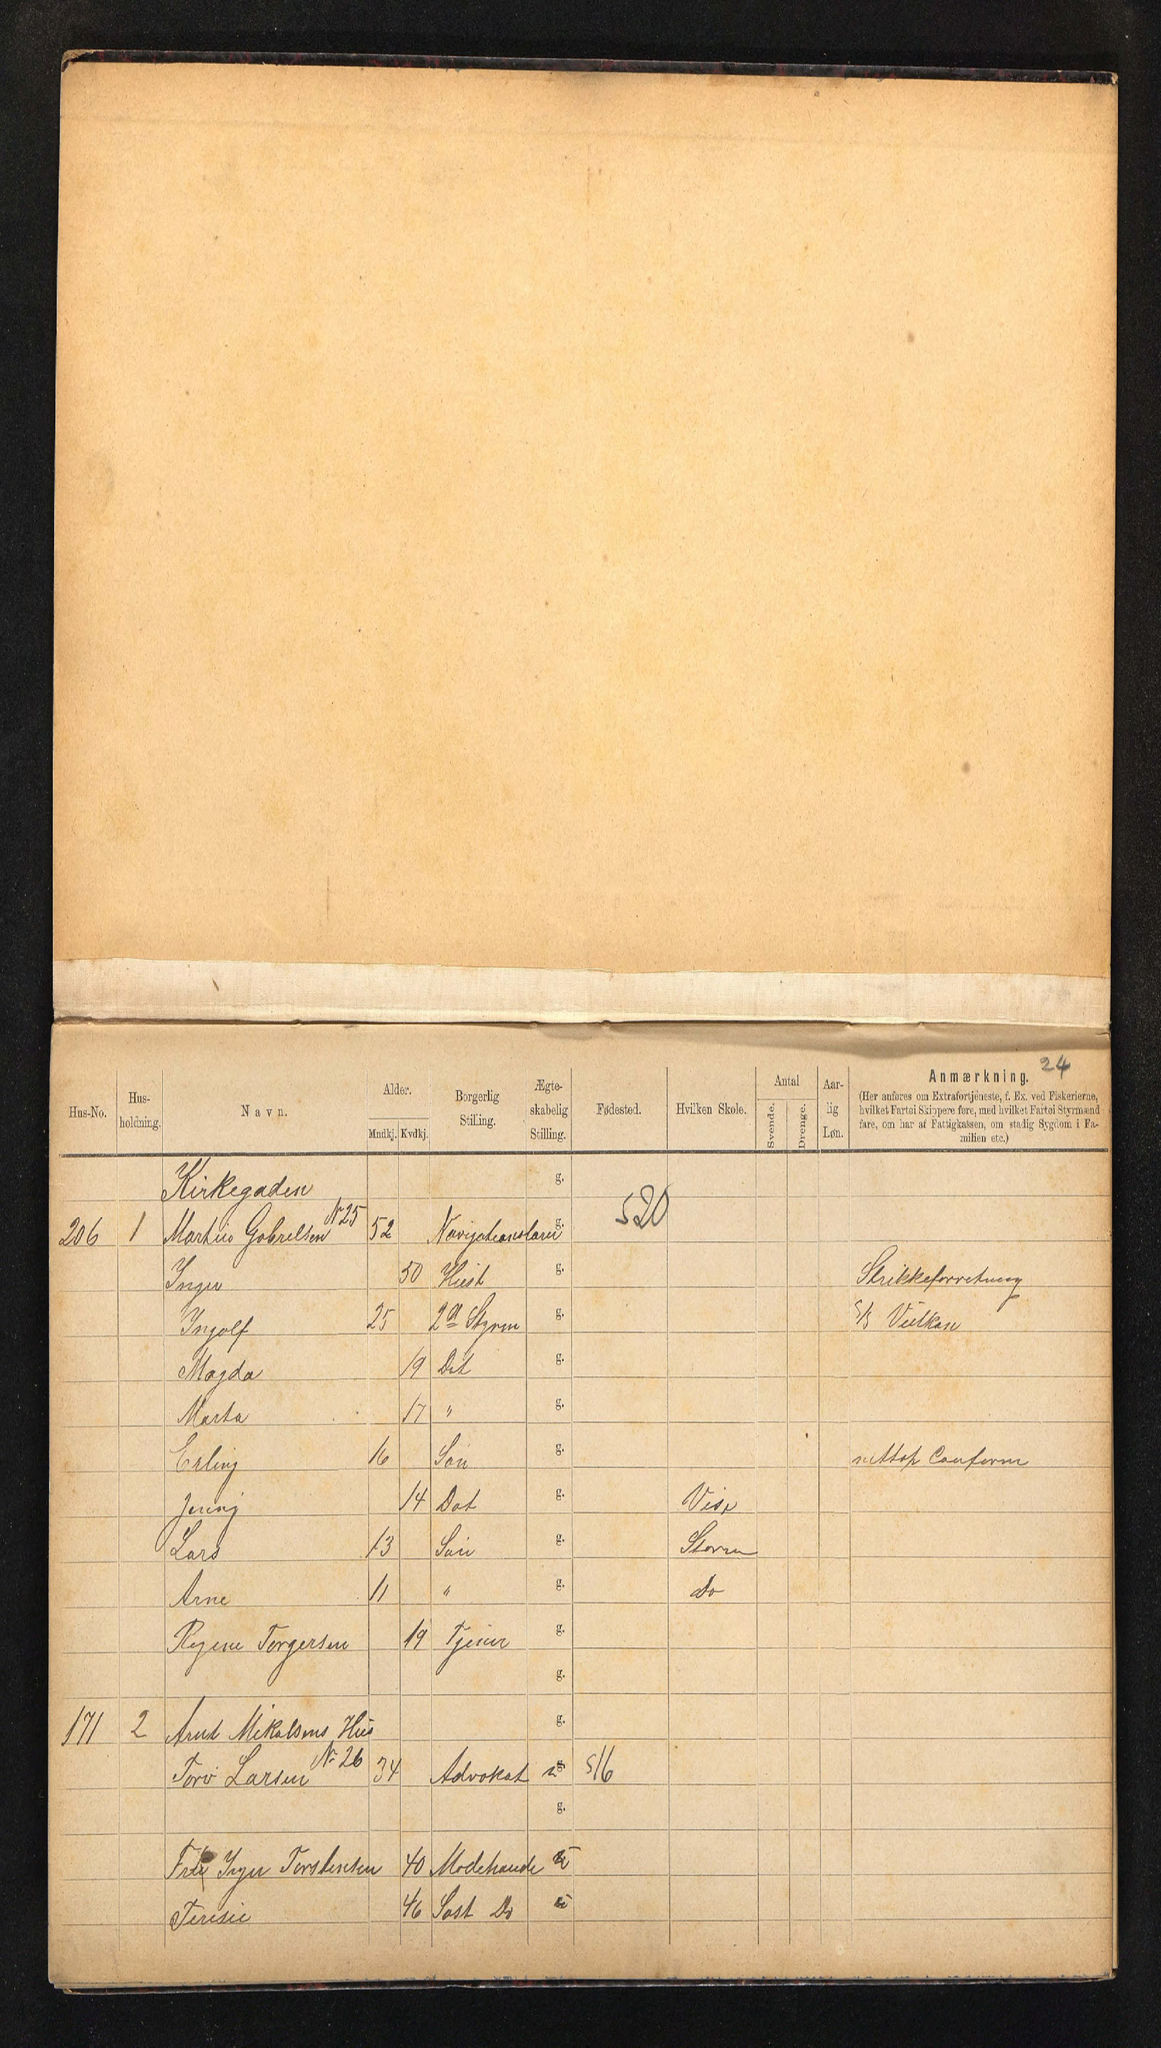 24
Hus-No. Hus-holdning. Navn. Alder. Mndkj. Kvdkj. Borgerlig Stilling. Ægte-skabelig Stilling. Fødested. Hvilken Skole. Antal Svende. Drenge. Aar-lig Løn. Anmærkning.
(Her anføres om Extrafortjeneste, f. Ex. ved Fiskerierne,
hvilket Fartøi Skippere føre, med hvilket Fartøi Styrmænd
fare, om har af Fattigkassen, om stadig Sygdom i Fa-
milien etc.)
Kirkegaden g.
206 1 Martin Gabrielsen No 25 52 Navigationslærer g. 520
Inger 50 Hust g. Strikkeforretning
Ingolf 25 2d Styrm g. S/S Vulkan
Magda 19 Dat g.
Marta 17 " g.
Erling 16 Søn g. nettop Conferm
Jenny 14 Dat g. Vise
Lars 13 Søn g. Storm
Arne 11 " g. do
Regine Torgersen 19 Tjener g.
g.
171 2 Arnt Mikalsens Hus g.
Tov Larsen No 26 34 Advokat 516
g.
Inger Torstensen 40 Modehandl
Teresie 46 Søst Do